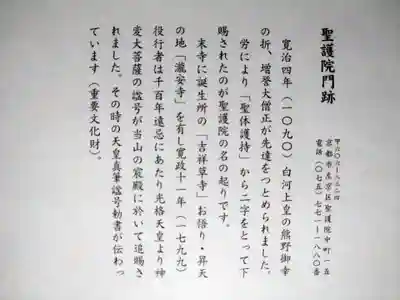 聖護院門跡
〒六〇六ー八三二四
京都市左京区聖護院中町一五
電話(〇七五)七七一ー一八八〇番
寛治四年(一〇九〇)白河上皇の熊野御幸
の折、増誉大僧正が先達をつとめられました。
労により「聖体護持」から二字をとって下
賜されたのが聖護院の名の起りです。
末寺に誕生所の「吉祥草寺」お悟り・昇天
の地「瀧安寺」を有し寛政十一年(一七九九)
役行者は千百年遠忌にあたり光格天皇より神
変大菩薩の諡号が当山の宸殿に於いて追賜さ
れました。その時の天皇真筆諡号勅書が伝わっ
ています(重要文化財)。